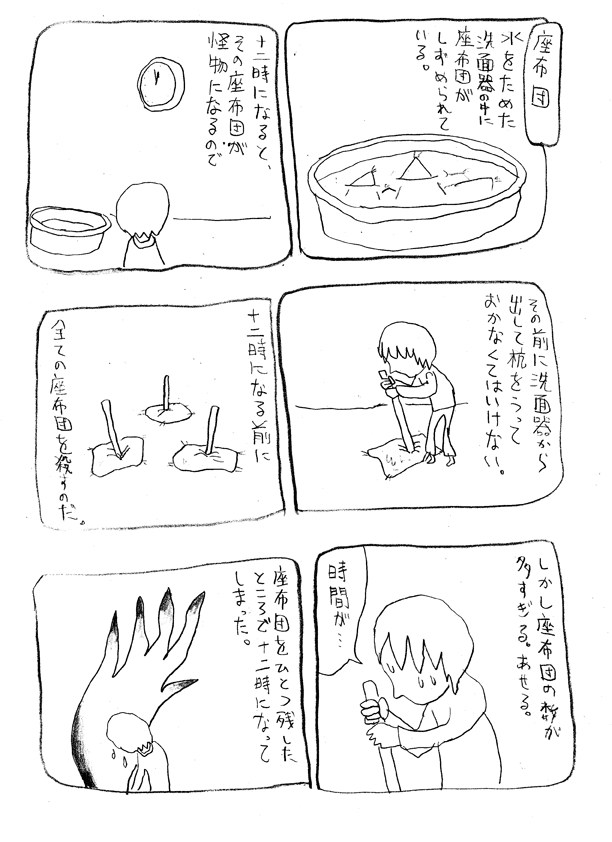 座布団
水をためた
洗面器の中に
座布団が
しずめられて
いる。
十二時になると、
その座布団が
怪物になるので
その前に洗面器から
出して杭をうって
おかなくてはいけない。
十二時になる前に
全ての座布団を殺すのだ。
しかし座布団の数が
多すぎる。あせる。
時間が…
座布団をひとつ残した
ところで十二時になって
しまった。